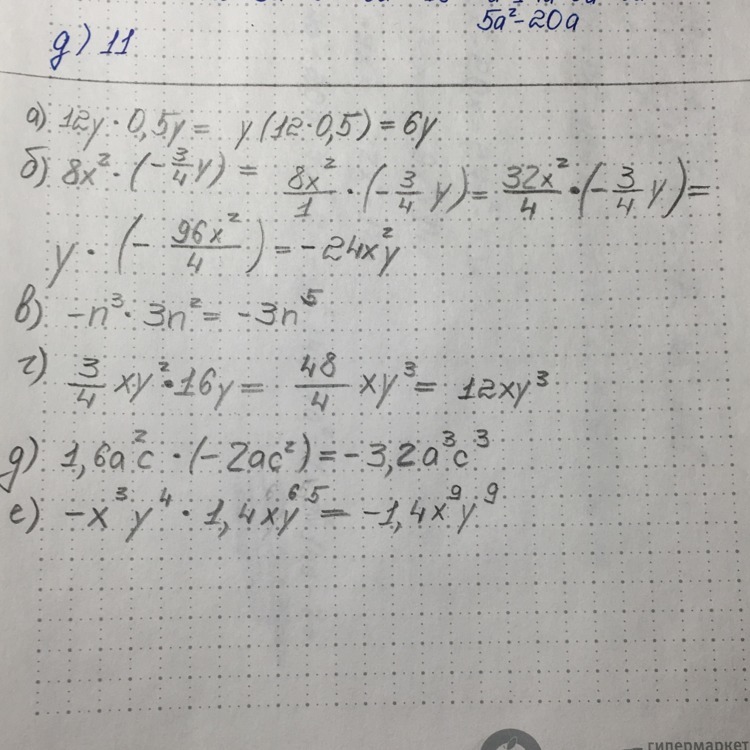 5a²-20a
д) 11
а) 12y · 0,5y = y(12·0,5) = 6y
б) 8x² · (-3/4 y) = 8x²/1 · (-3/4 y) = 32x²/4 · (-3/4 y) =
y · (- 96x²/4) = -24x²y
в) -n³ · 3n² = -3n⁵
г) 3/4 xy² · 16y = 48/4 xy³ = 12xy³
д) 1,6a²c · (-2ac²) = -3,2a³c³
е) -x³y⁴ · 1,4xy⁶⁵ = -1,4x⁹y⁹
гипермаркет